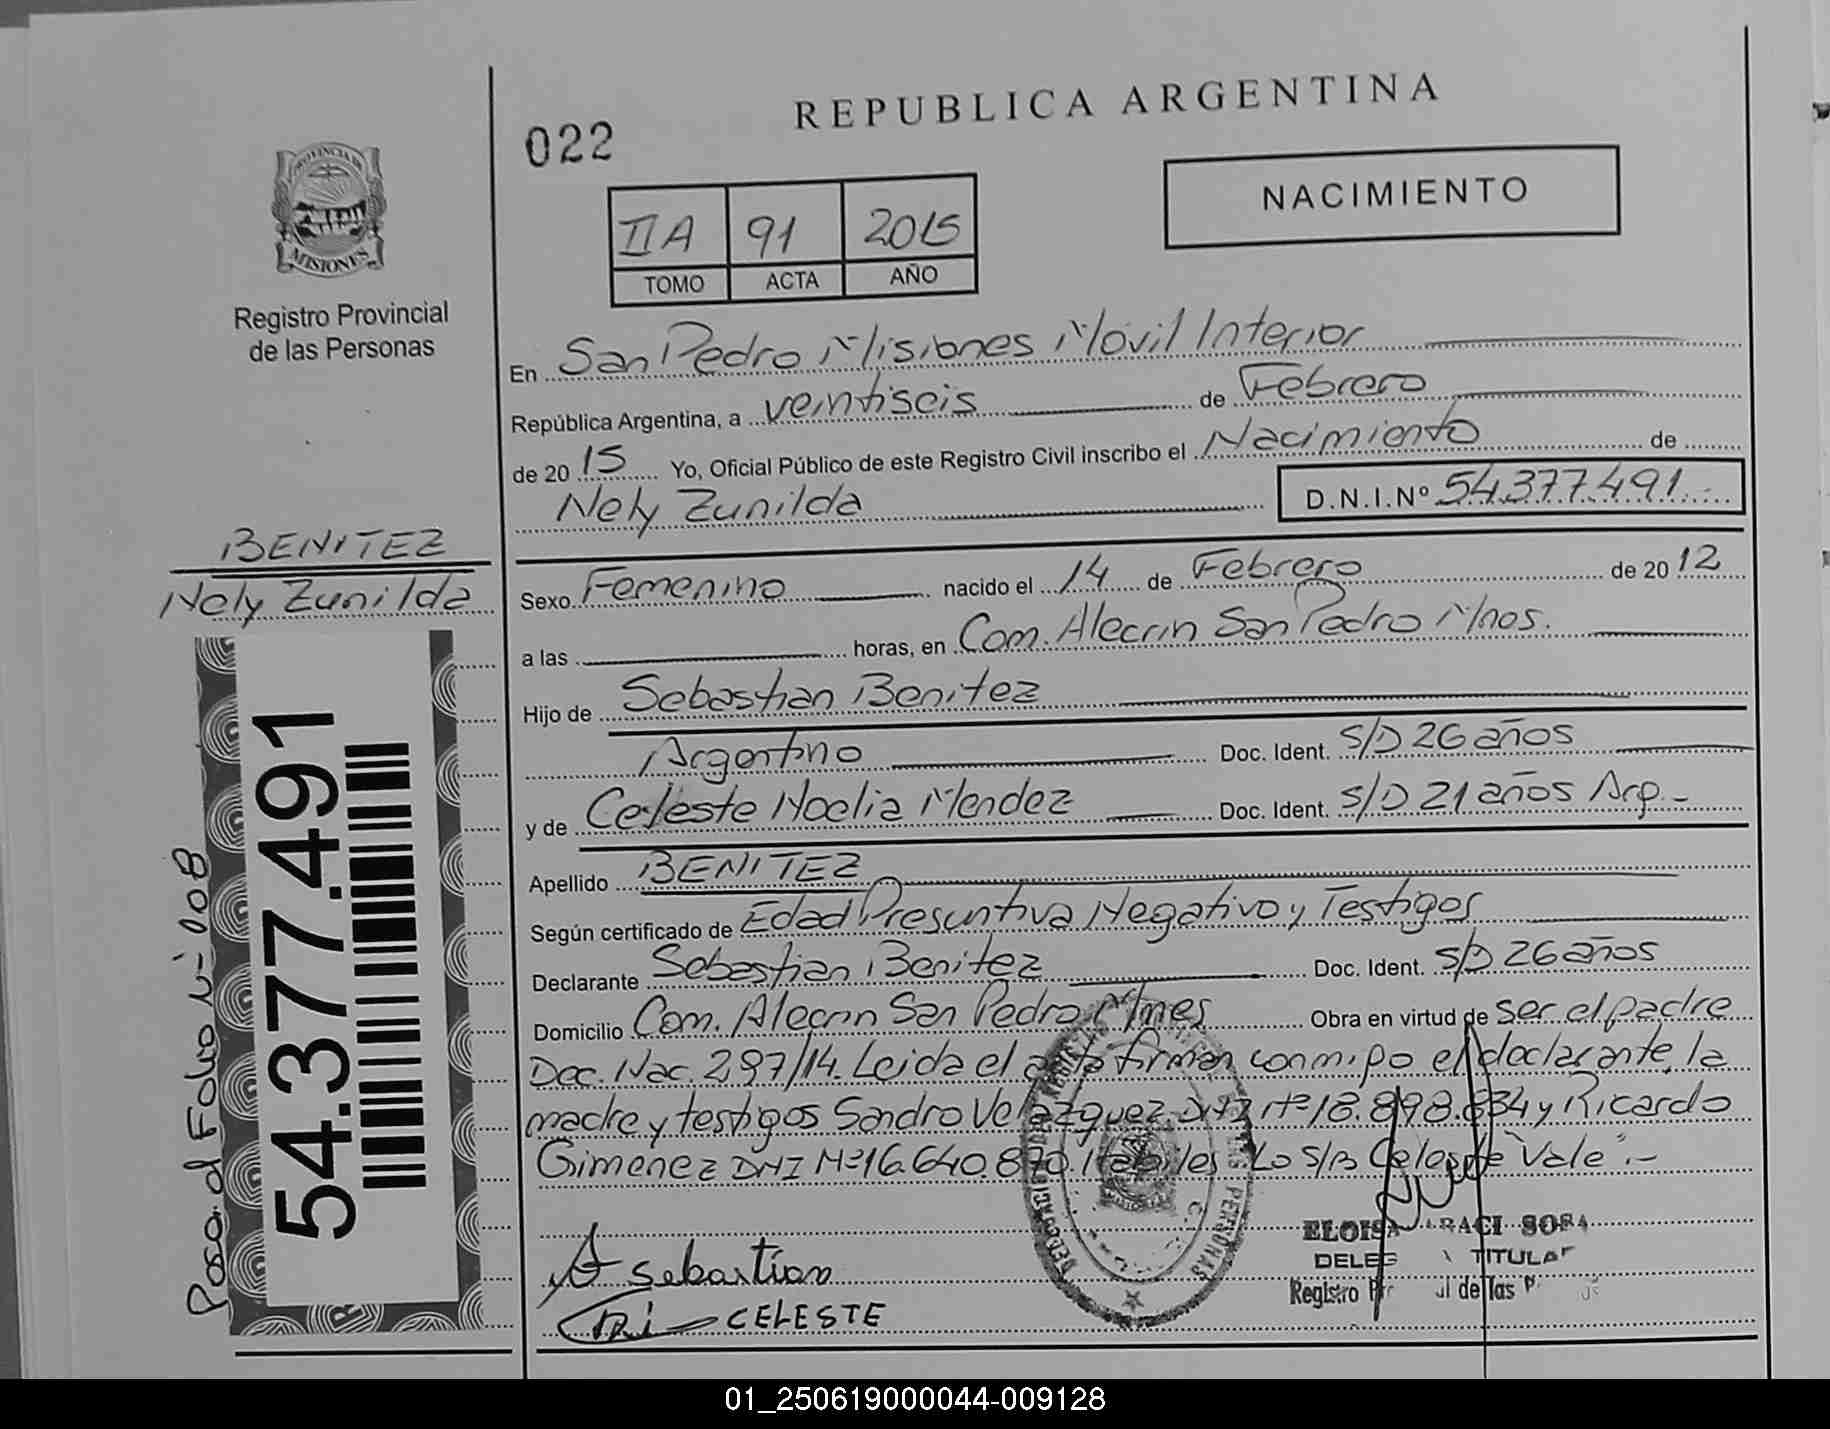 REPUBLICA ARGENTINA
022
NACIMIENTO
II A 91 2015
TOMO ACTA AÑO
PROVINCIA DE
MISIONES
Registro Provincial
de las Personas
En San Pedro Misiones Móvil Interior
República Argentina, a veintiseis de Febrero
de 2015 Yo, Oficial Público de este Registro Civil inscribo el Nacimiento de
Nely Zunilda D.N.I.Nº 54.377.491
BENITEZ
Nely Zunilda
Sexo Femenino nacido el 14 de Febrero de 2012
a las horas, en Com. Alecrin San Pedro Mnes.
Hijo de Sebastian Benitez
Argentino Doc. Ident. S/D 26 años
y de Celeste Noelia Mendez Doc. Ident. S/D 21 años Arg.-
Apellido BENITEZ
Según certificado de Edad Presuntiva Negativo y Testigos
Declarante Sebastian Benitez Doc. Ident. S/D 26 años
Domicilio Com. Alecrin San Pedro Mnes Obra en virtud de ser el padre
Dec. Nac. 297/14. Leida el acta firman conmigo el declarante, la
madre y testigos Sandro Velazquez DNI Nº 18.898.834 y Ricardo
Gimenez DNI Nº 16.640.870. Habiles Lo S/B Celeste "Vale".-
54.377.491
Pasa al Folio Nº 008
Sebastian
CELESTE
ELOISA ARACI SOSA
DELEG TITULAR
Registro de las
PERSONAS
01_250619000044-009128